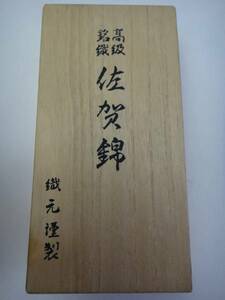 高級
銘織
佐賀錦
織元謹製